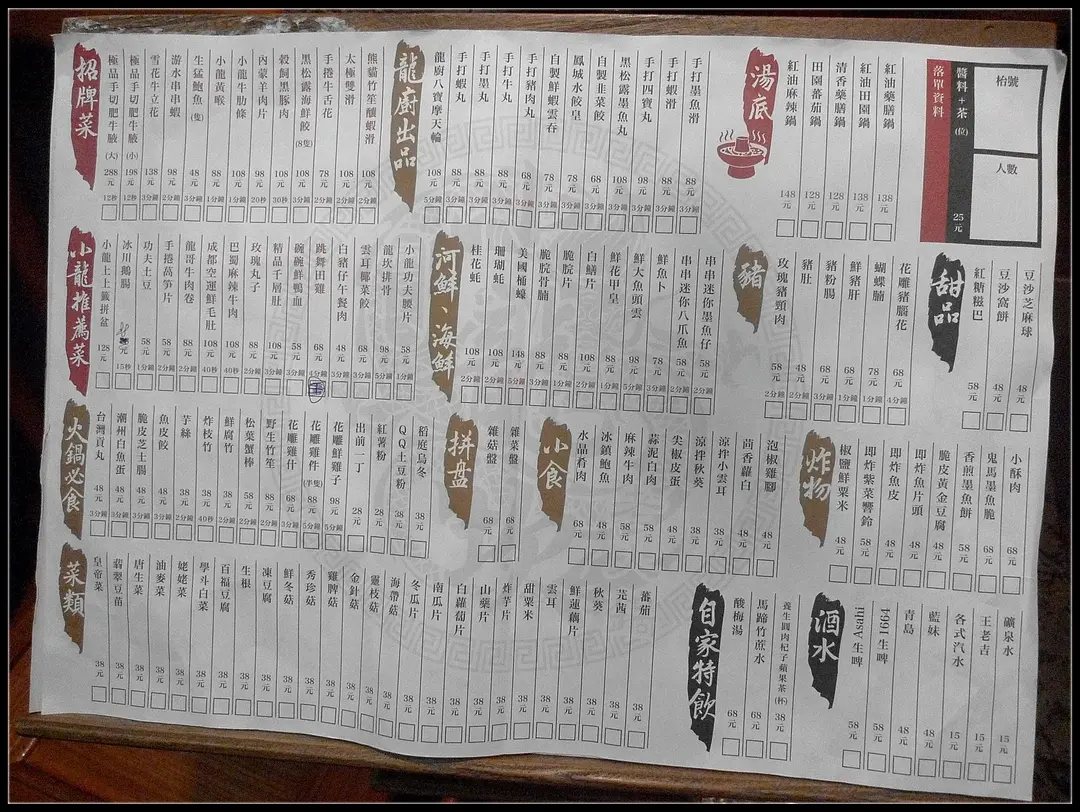 招牌菜
極品手切肥牛脥(大) 288元 12秒
極品手切肥牛脥(小) 198元 12秒
雪花牛立花 138元 2分鐘
游水串串蝦 98元 2分鐘
生猛鮑魚(隻) 48元 3分鐘
小龍黃喉 88元 1分鐘
小龍牛肋條 108元 1分鐘
內蒙羊肉片 98元 20秒
穀飼黑豚肉 108元 30秒
黑松露海鮮餃(8隻) 108元 3分鐘
手捲牛舌花 78元 2分鐘
太極雙滑 108元 2分鐘
熊貓竹笙釀蝦滑 108元 2分鐘
龍廚出品
龍廚八寶摩天輪 108元 5分鐘
手打蝦丸 88元 3分鐘
手打墨丸 88元 3分鐘
手打牛丸 88元 3分鐘
手打豬肉丸 68元 3分鐘
自製鮮蝦雲吞 78元 3分鐘
鳳城水餃皇 78元 3分鐘
自製韭菜餃 68元 2分鐘
黑松露墨魚丸 108元 3分鐘
手打四寶丸 98元 3分鐘
手打蝦滑 88元 3分鐘
手打墨魚滑 88元 3分鐘
湯底
紅油麻辣鍋 148元
田園蕃茄鍋 128元
清香藥膳鍋 128元
紅油田園鍋 138元
紅油藥膳鍋 138元
落單資料
醬料+茶(位) 25元
枱號
人數
小龍推薦菜
小龍上上籤拼盆 128元
冰川鵝腸 元 15秒
功夫土豆 58元 1分鐘
手捲萵笋片 58元 2分鐘
龍哥牛肉卷 88元 2分鐘
成都空運鮮毛肚 108元 40秒
巴蜀麻辣牛肉 108元 40秒
玫瑰丸子 88元 2分鐘
精品千層肚 108元 3分鐘
碗碗鮮鴨血 58元 3分鐘
跳舞田雞 68元 4分鐘
白豬仔午餐肉 48元 3分鐘
雲耳椰菜餃 68元 3分鐘
龍坎排骨 98元 5分鐘
小龍功夫腰片 58元 1分鐘
河鮮、海鮮
桂花蚝 108元 2分鐘
珊瑚蚝 108元 2分鐘
美國桶蠔 148元 5分鐘
脆脘骨腩 88元 3分鐘
脆脘片 88元 1分鐘
白鱔片 108元 2分鐘
鮮花甲皇 88元 1分鐘
鮮大魚頭雲 98元 5分鐘
鮮魚卜 78元 3分鐘
串串迷你八爪魚 58元 2分鐘
串串迷你墨魚仔 58元 2分鐘
豬
玫瑰豬頸肉 58元 2分鐘
豬肚 48元 2分鐘
豬粉腸 68元 3分鐘
鮮豬肝 68元 1分鐘
蝴蝶腩 78元 1分鐘
花雕豬腦花 68元 4分鐘
甜品
紅糖糍巴 58元
豆沙窩餅 48元
豆沙芝麻球 48元
火鍋必食
台灣貢丸 48元 3分鐘
潮州白魚蛋 48元 3分鐘
脆皮芝士腸 48元 3分鐘
魚皮餃 48元 3分鐘
芋絲 38元 2分鐘
炸枝竹 38元 40秒
鮮腐竹 38元 2分鐘
松葉蟹棒 58元 2分鐘
野生竹笙 88元 2分鐘
花雕雞什 68元 3分鐘
花雕雞件(半隻) 88元 5分鐘
花雕鮮雞子 98元 5分鐘
出前一丁 28元
紅薯粉 28元
QQ土豆粉 38元
稻庭烏冬 38元
拼盘
雜菇盤 68元
雜菜盤 68元
小食
水晶肴肉 68元
冰鎮鮑魚 48元
麻辣牛肉 58元
蒜泥白肉 58元
尖椒皮蛋 48元
涼拌秋葵 38元
涼拌小雲耳 38元
茴香蘿白 48元
泡椒雞腳 48元
炸物
椒鹽鮮粟米 48元
即炸紫菜響鈴 58元
即炸魚皮 48元
即炸魚片頭 48元
脆皮黃金豆腐 48元
香煎墨魚餅 58元
鬼馬墨魚脆 68元
小酥肉 68元
菜類
皇帝菜 38元
翡翠豆苗 38元
唐生菜 38元
油麥菜 38元
娓娓菜 38元
學斗白菜 38元
百福豆腐 38元
生根 38元
凍豆腐 38元
鮮冬菇 38元
秀珍菇 38元
雞脾菇 38元
金針菇 38元
靈枝菇 38元
海帶菇 38元
冬瓜片 38元
南瓜片 38元
白蘿蔔片 38元
山藥片 38元
炸芋片 38元
甜粟米 38元
雲耳 38元
鮮蓮藕片 38元
秋葵 38元
芫茜 38元
蕃茄 38元
自家特飲
酸梅湯 68元
馬蹄竹蔗水 68元
養生圓肉杞子蘋果茶(杯) 38元
酒水
Asahi生啤 58元
1664生啤 58元
青島 48元
藍妹 48元
各式汽水 15元
王老吉 15元
礦泉水 15元